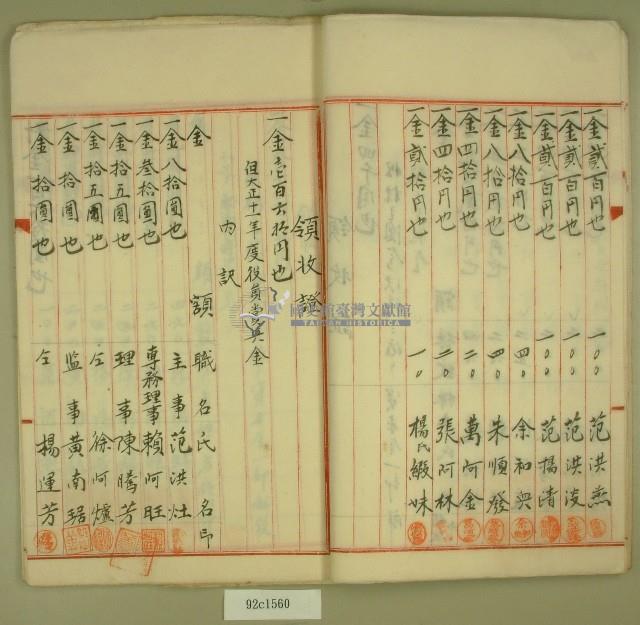 一金貳百円也 一〇〇 范洪燕
一金貳百円也 一〇〇 范洪浚
一金貳百円也 一〇〇 范揚清
一金八拾円也 四〇 余和興
一金八拾円也 四〇 朱順發
一金四拾円也 二〇 萬阿金
一金四拾円也 二〇 張阿林
一金貳拾円也 一〇 楊氏緞妹
領收證
一金壱百六拾円也
但大正十一年度役員賞與金
內訳
金額 職名 氏名印
一金八拾圓也 主事 范洪灶
一金叁拾圓也 専務理事 賴阿旺
一金拾五圓也 理事 陳騰芳
一金拾五圓也 仝 徐阿爐
一金拾圓也 监事 黃南琚
一金拾圓也 仝 楊運芳
國史館臺灣文獻館
TAIWAN HISTORICA
92c1560